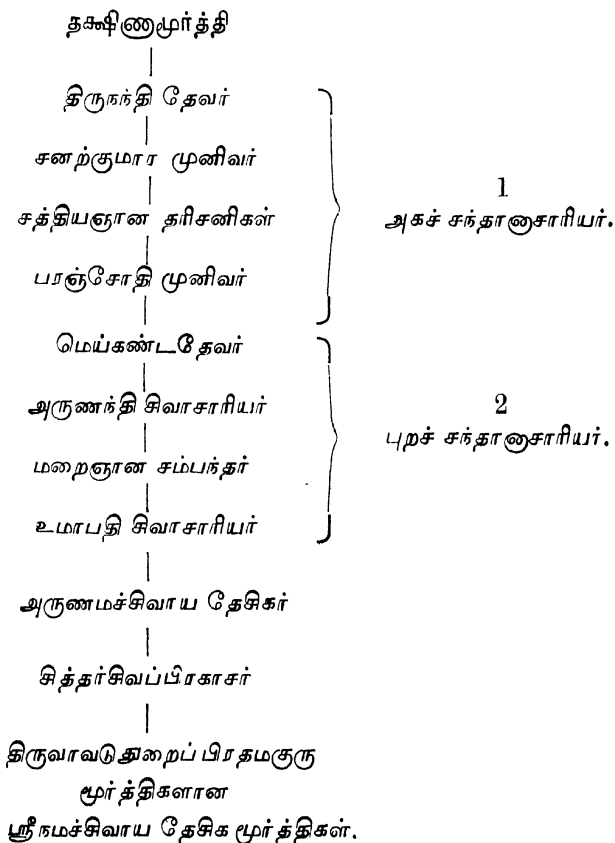 தக்ஷிணாமூர்த்தி
திருநந்தி தேவர்
சனற்குமார முனிவர்
சத்தியஞான தரிசனிகள்
பரஞ்சோதி முனிவர்
1
அகச் சந்தானாசாரியர்.
மெய்கண்டதேவர்
அருணந்தி சிவாசாரியர்
மறைஞான சம்பந்தர்
உமாபதி சிவாசாரியர்
2
புறச் சந்தானாசாரியர்.
அருணமச்சிவாய தேசிகர்
சித்தர்சிவப்பிரகாசர்
திருவாவடுதுறைப் பிரதமகுரு
மூர்த்திகளான
ஸ்ரீநமச்சிவாய தேசிக மூர்த்திகள்.